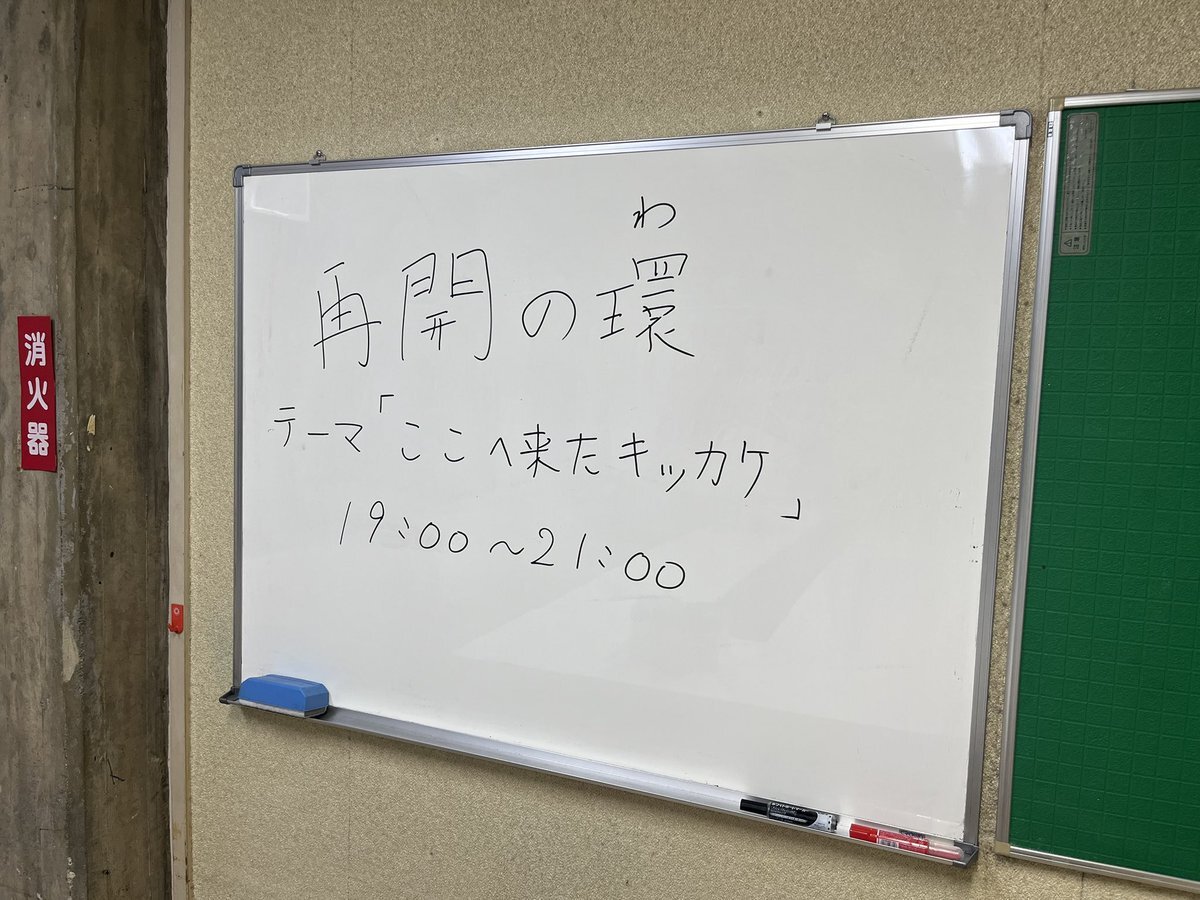 消火器
わ
再開の環
テーマ「ここへ来たキッカケ」
19:00～21:00